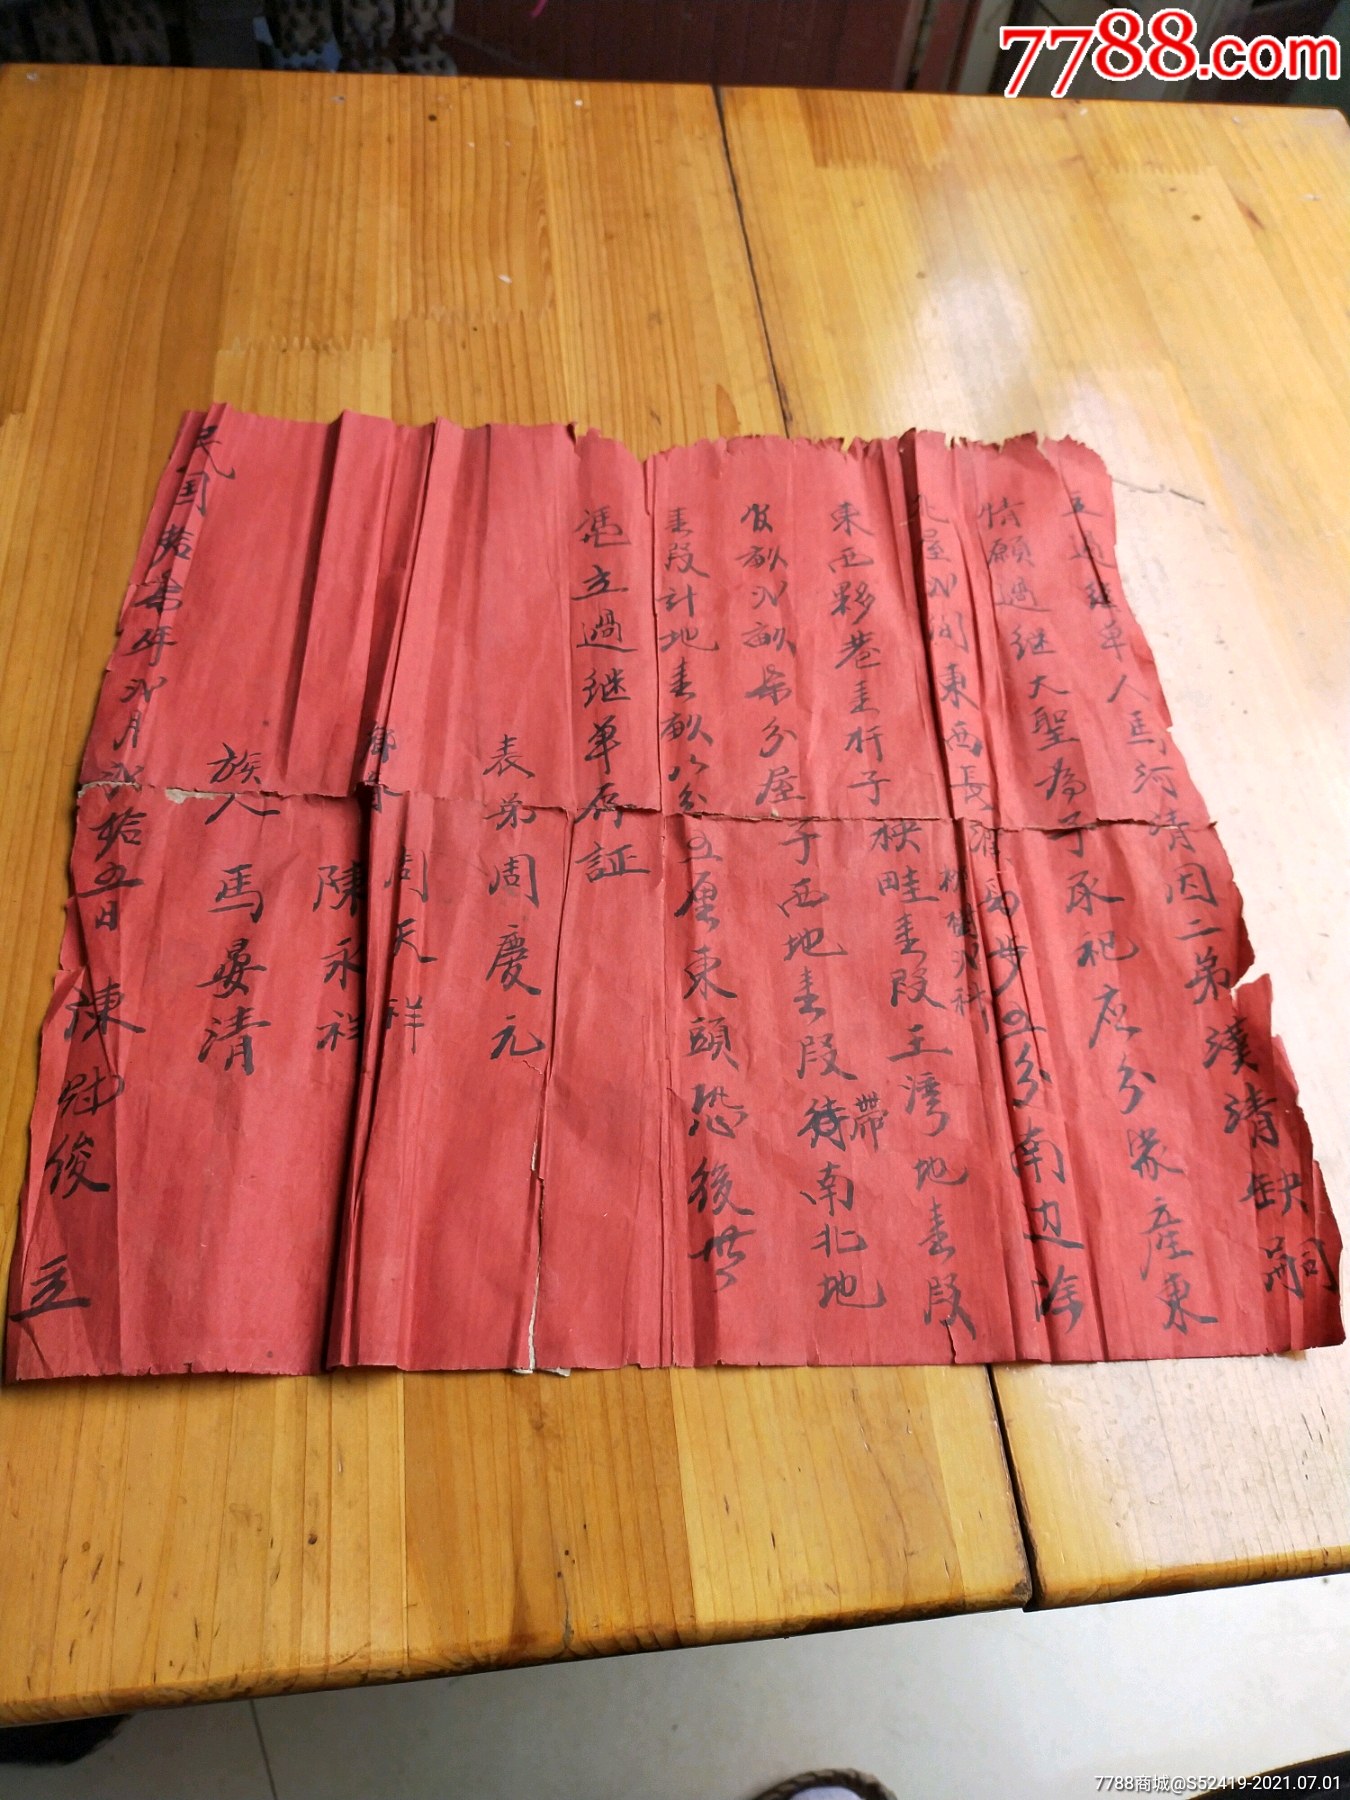 7788.com
立過继单人馬河清因二弟漢清缺嗣
情願過继大聖為子承祀应分家產東
北屋 间東西長 步五分南边除
東西夥巷 子 畦壹段王湾地壹段
畝 畝 分屋子西地壹段待南北地
帶
壹段計地壹畝八分五厘東頭恐後無
憑立過继单存証
表弟周慶元
周天祥
陳永祥
族人 馬晏清
民国 年 月 拾五日 陳冠俊 立
7788商城@S52419-2021.07.01